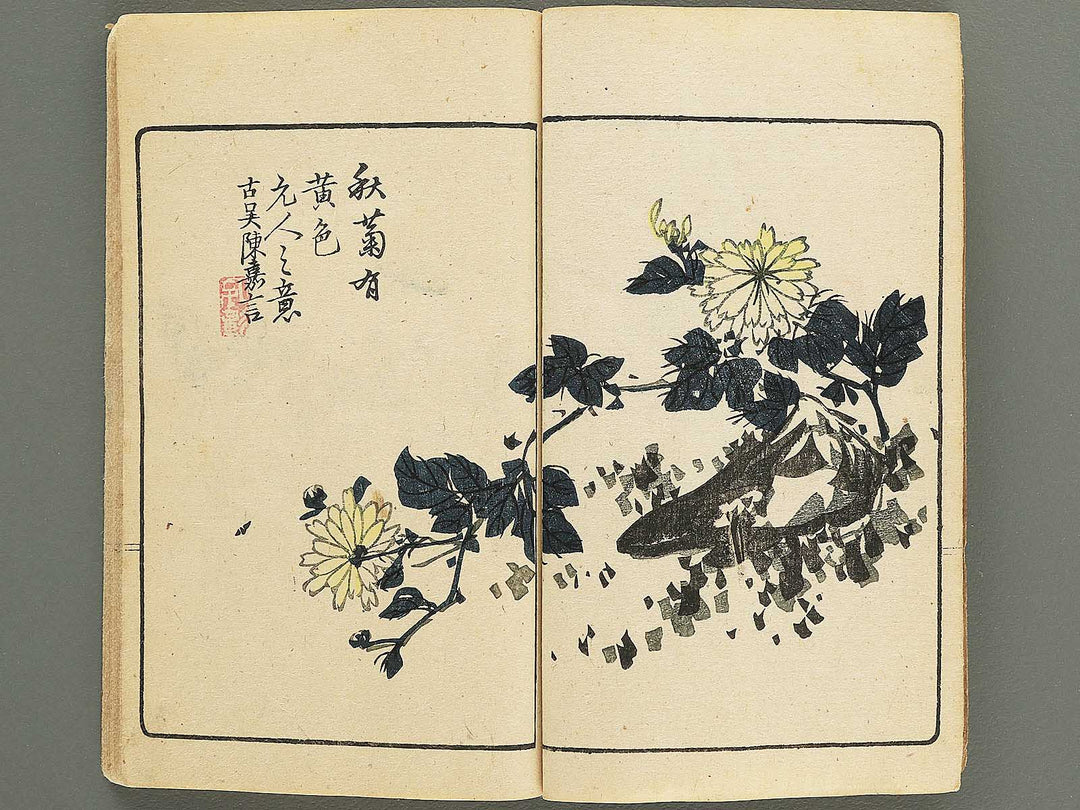 秋菊有
黄色
元人之意
古吴陳嘉言